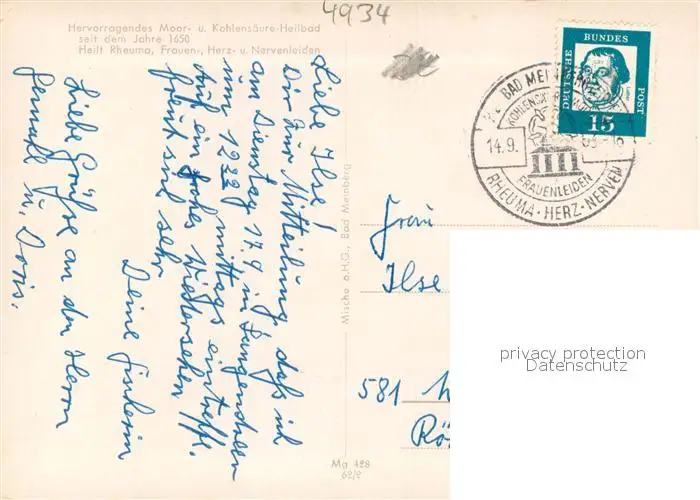 4934
Hervorragendes Moor- u. Kohlensäure-Heilbad
seit dem Jahre 1650
Heilt Rheuma, Frauen-, Herz- u. Nervenleiden
Liebe Ilse!
Dir zur Mitteilung, daß ich
am Dienstag 17.9 in
um 12 22 mittags eintreffe.
Auf ein frohes Wiedersehen
freut sich sehr
Deine
Liebe Grüße an den Herrn
Gemahl u. Doris.
Mische o.H.G., Bad Meinberg
Mg 428
62/2
DEUTSCHE BUNDES POST
15
BAD MEINBERG
14.9.
63-16
FRAUENLEIDEN
RHEUMA · HERZ · NERVEN
Frau
Ilse
581
privacy protection
Datenschutz